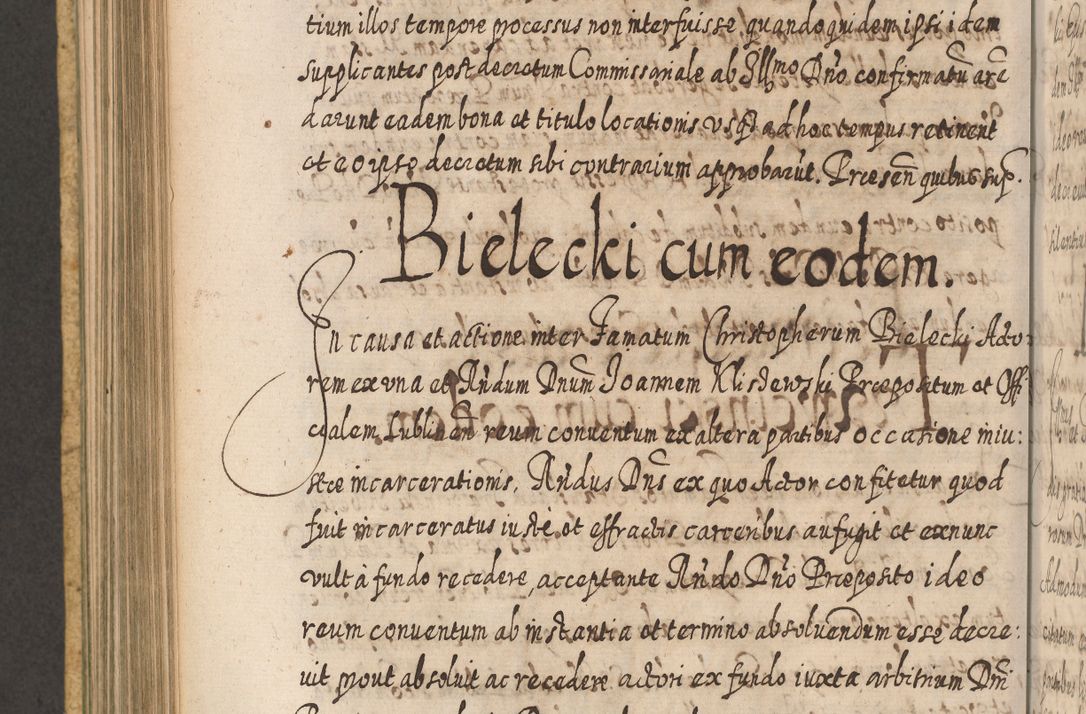 tium illos tempore processus non interfuisse, quandoquidem ipsi idem
supplicantes post decretum Commissariale ab Illmo Dño confirmatũ arẽ
darunt eadem bona et titulo locationis usq3 ad hoc tempus retinent
et eo ipso decretum sibi contrarium approbarũt. Præsen̄ quibus sup.
Bielecki cum eodem.
In causa et actione inter Famatum Christopherum Bielecki Acto
rem ex vna et Andum Dnum Joannem Klisdewski Præpositum et Offi
cialem Lublinen̄ reum conventum ex altera partibus occasione iniu:
stæ incarcerationis, Andus Dñs ex quo Actor confitetur quod
fuit incarceratus iustè et effractis carceribus aufugit et exnunc
vult à fundo recedere, acceptante Ando Dño Præposito ideo
reum conuentum ab instantia et termino absoluendum esse decre:
uit prout absoluit ac recedere actori ex fundo iuxta arbitrium Dni